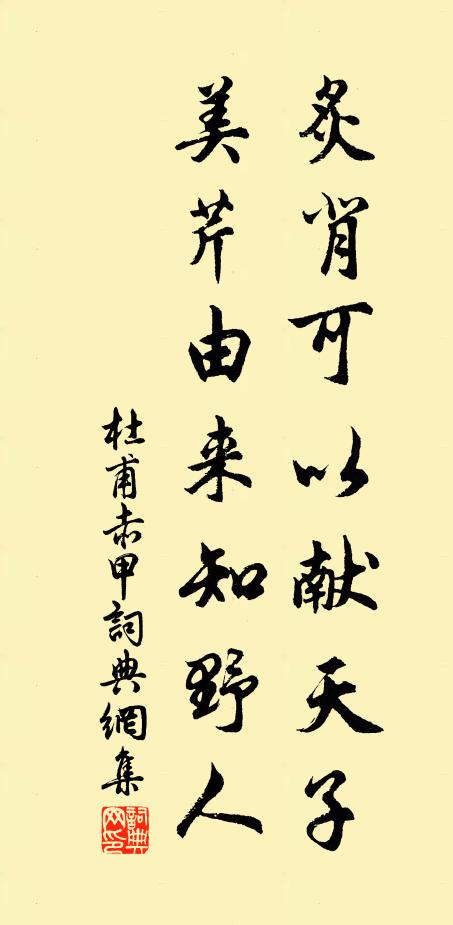 炙背可以献天子
美芹由来知野人
杜甫赤甲詞典網集
詞典网印